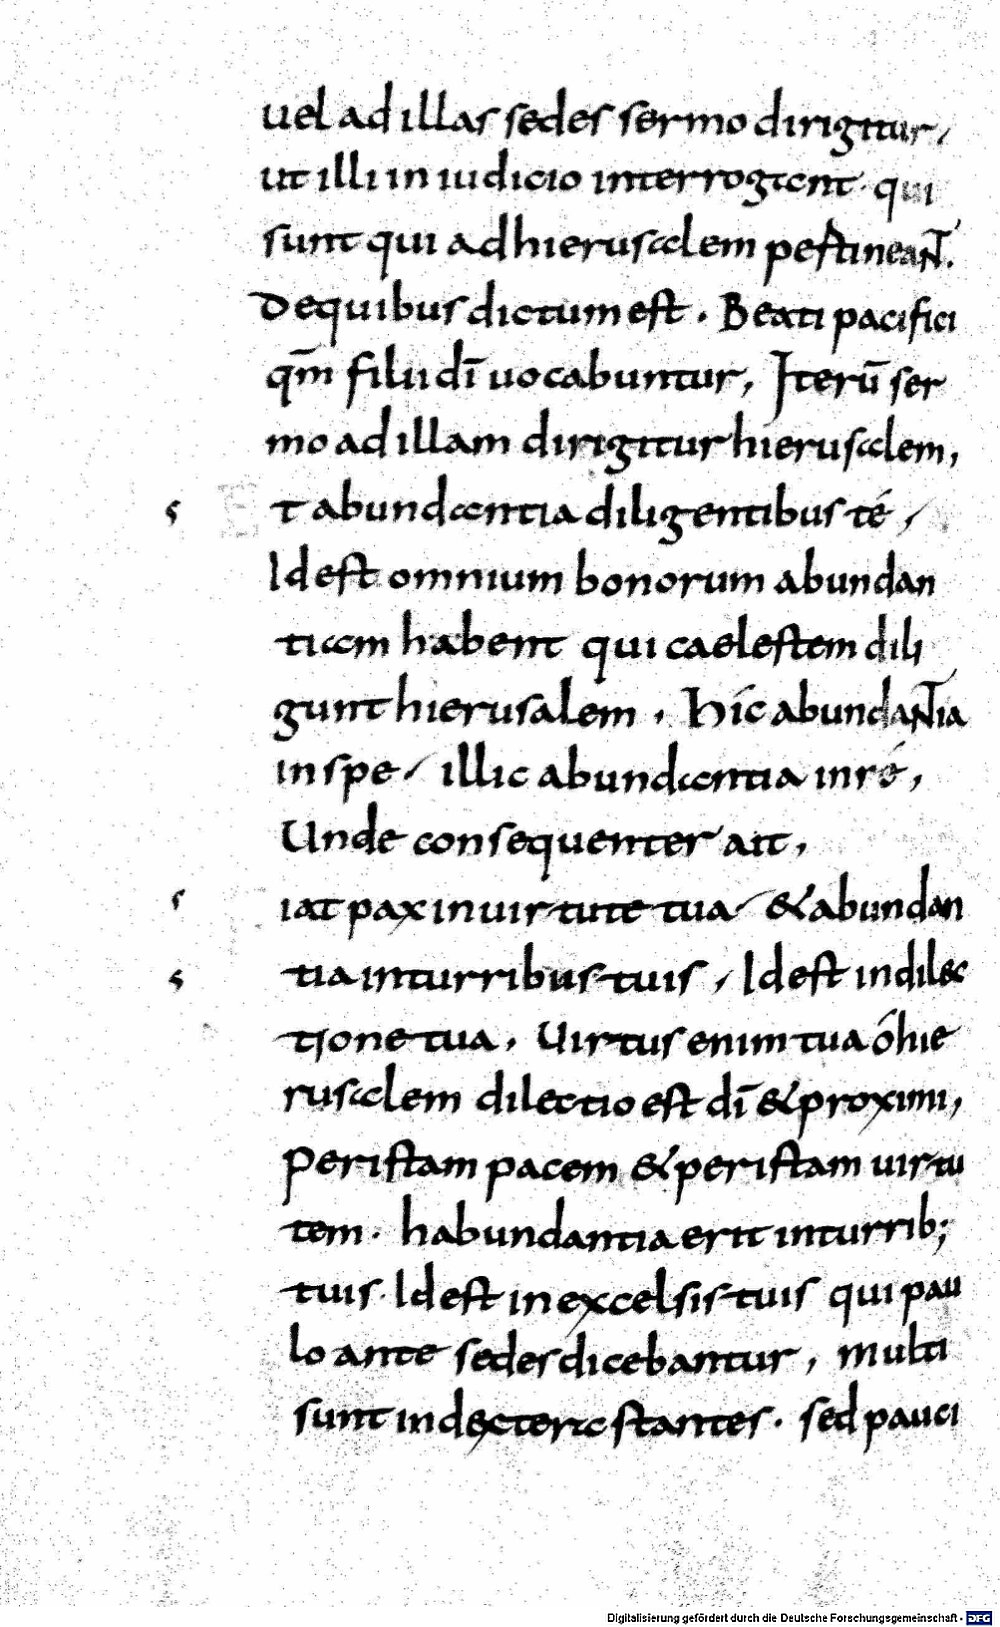 uel ad illas sedes sermo dirigitur,
ut illi in iudicio interrogent. qui
sunt qui ad hierusalem pertineant.
De quibus dictum est. Beati pacifici
qm̄ filii dī uocabuntur, Iterū ser
mo ad illam dirigitur hierusalem,
s t abundantia diligentibus té,
Id est omnium bonorum abundan
tiam habent qui caelestem dili
gunt hierusalem, Híc abundantia
in spe, illic abundantia in ré,
Unde consequenter ait,
s iat pax in uirtute tua, & abundan
s tia in turribus tuis, Id est in dilec
tione tua, Uirtus enim tua ó hie
rusalem dilectio est dī & proximi,
Per istam pacem & per istam uirtu
tem. habundantia erit in turrib;
tuis. Id est in excelsis tuis qui pau
lo ante sedes dicebantur, multi
sunt in dextera stantes. sed pauci
Digitalisierung gefördert durch die Deutsche Forschungsgemeinschaft - DFG